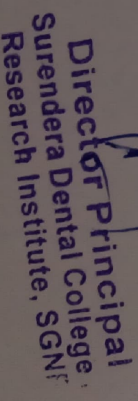 Director Principal
Surendera Dental College
Research Institute,